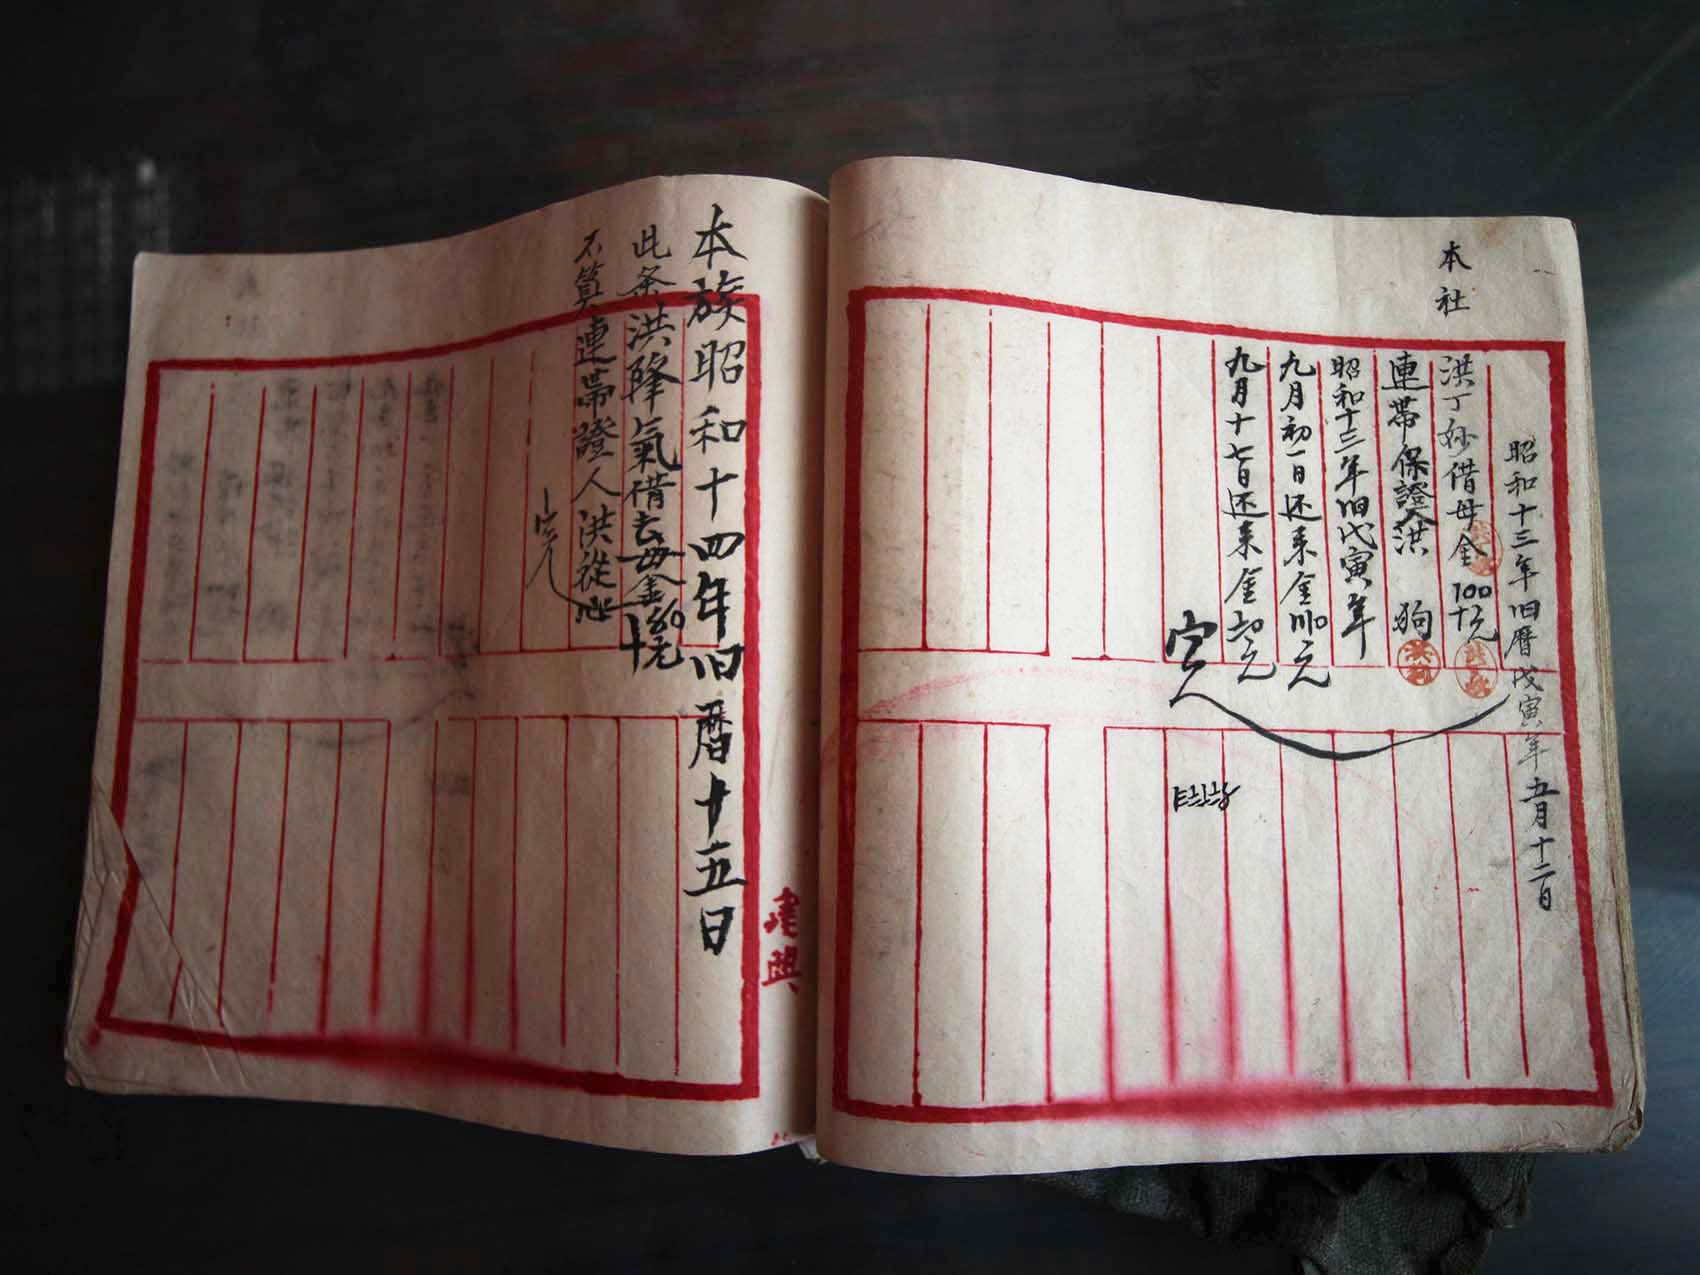 昭和十三年旧曆戊寅年五月十二日
本社
洪丁 借母金100元
連帶保證人洪 狗
昭和十三年旧戊寅年
九月初一日还来金 元
九月十七日还来金 元
完
本族昭和十四年旧曆十五日
此条洪 氣借去母金 元
不算連帶證人洪從
完
建興